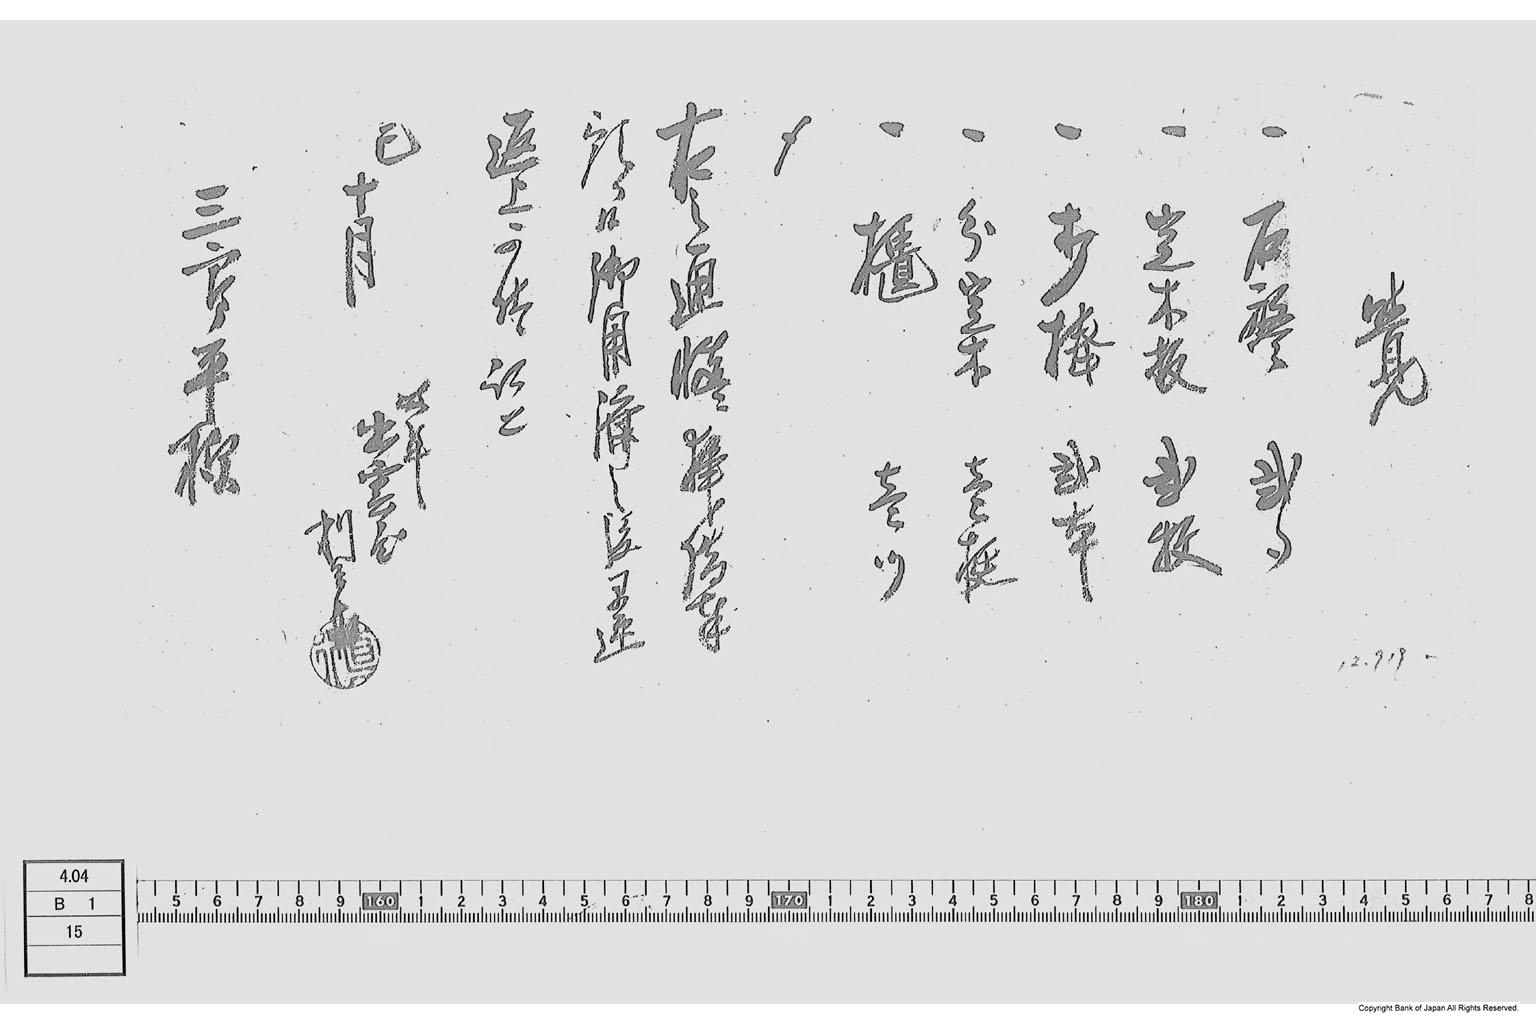 覚
一 石磐 弐ツ
一 定木板 弐枚
一 歩棒 弐本
一 分定木 壱挺
一 櫃 壱ツ
〆
右之通慥ニ拝借奉
願候御用済之後早速
返上可仕候以上
巳
十月
出雲屋
三宮平様
12.919
4.04
B 1
15
5 6 7 8 9 160 1 2 3 4 5 6 7 8 9 170 1 2 3 4 5 6 7 8 9 180 1 2 3 4 5 6 7 8
Copyright Bank of Japan All Rights Reserved.